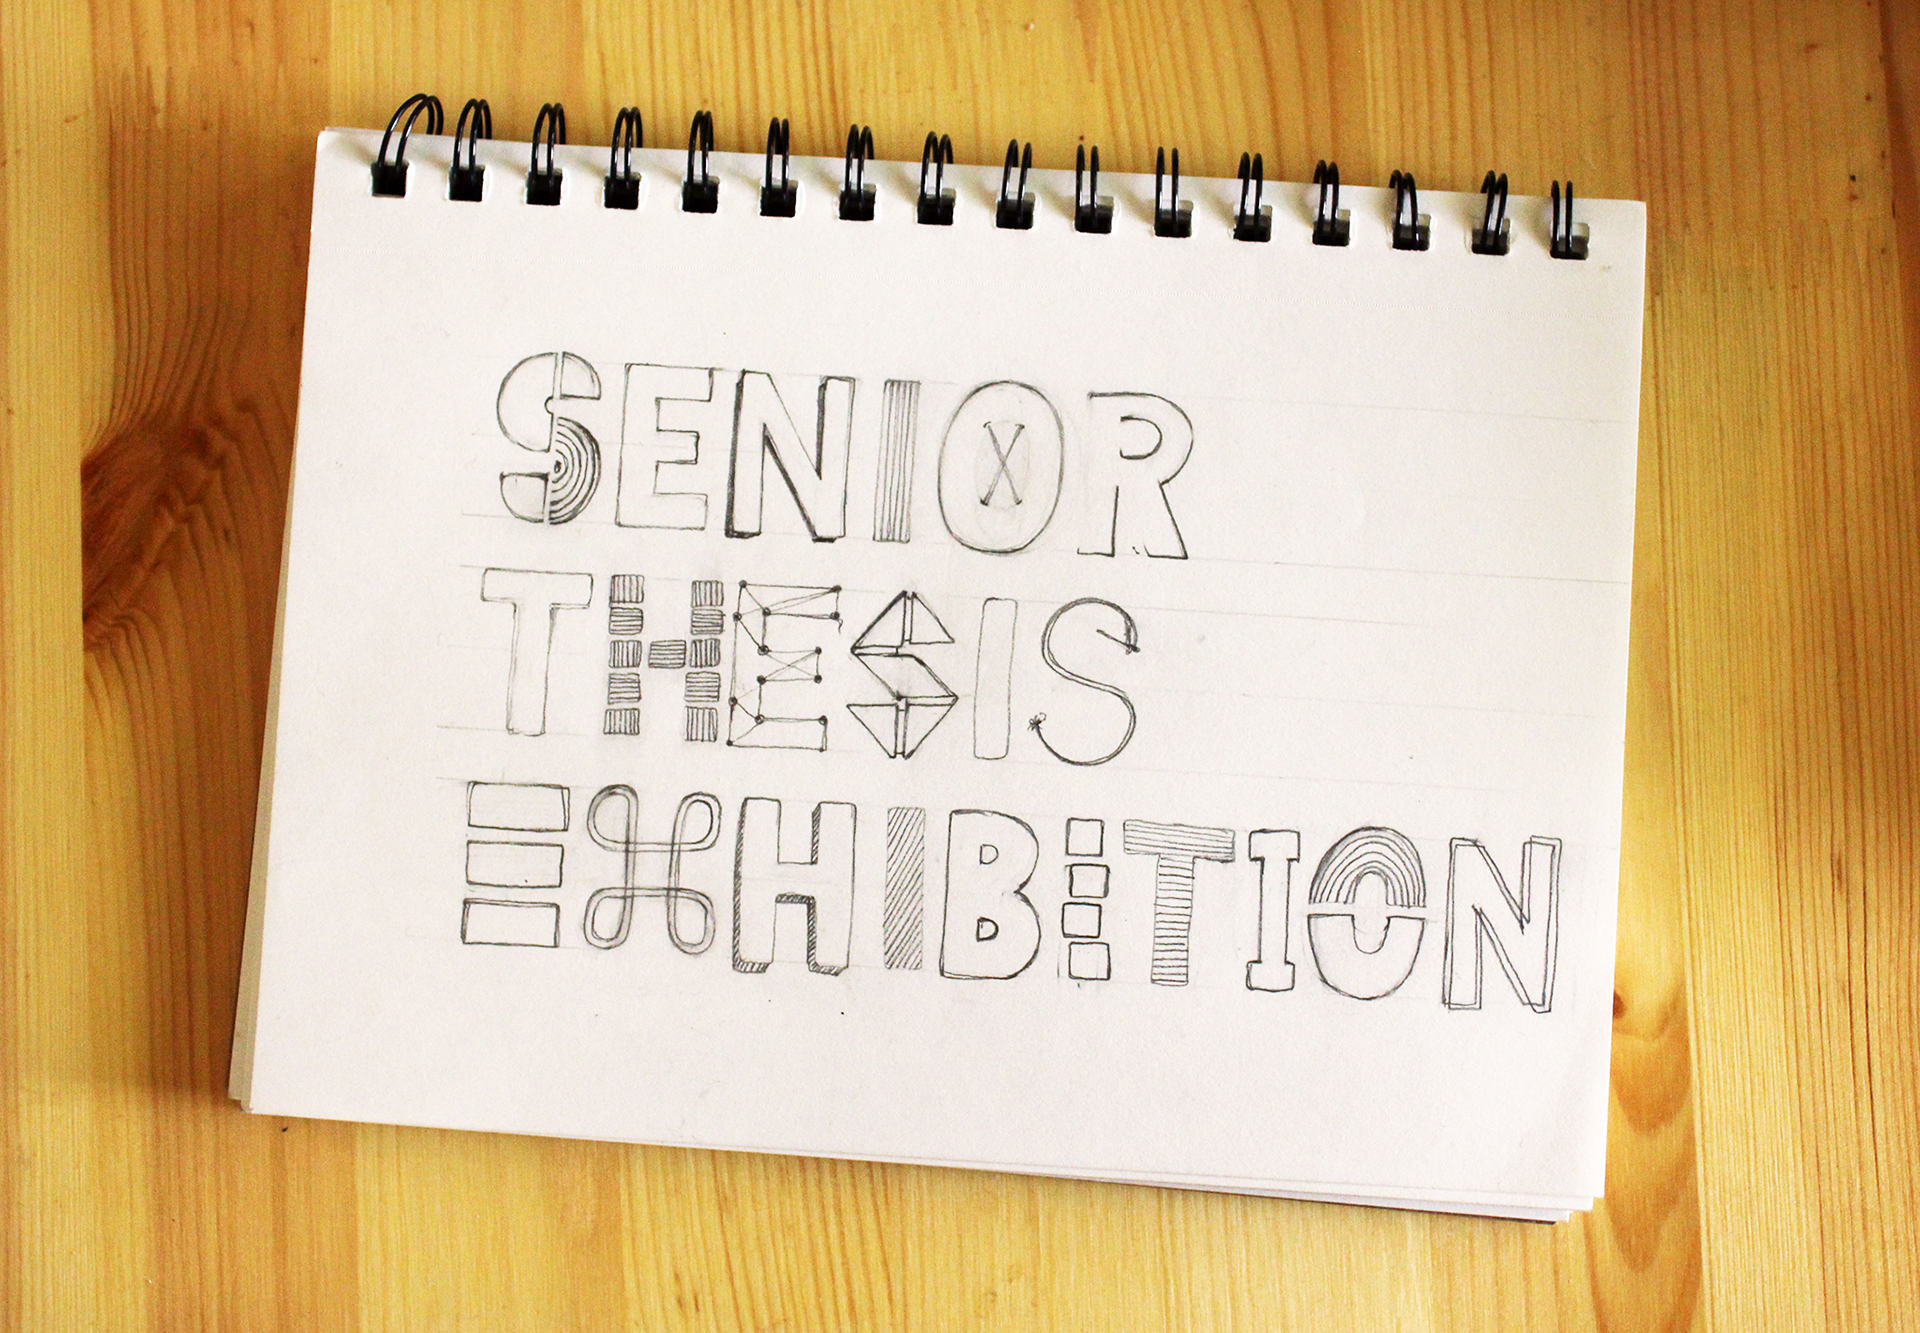 SENIOR
THESIS
EXHIBITION